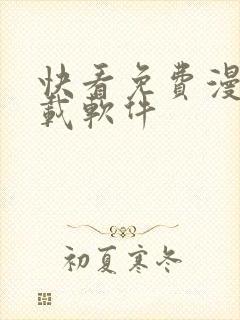 快看免費漫
載軟件
初夏寒冬